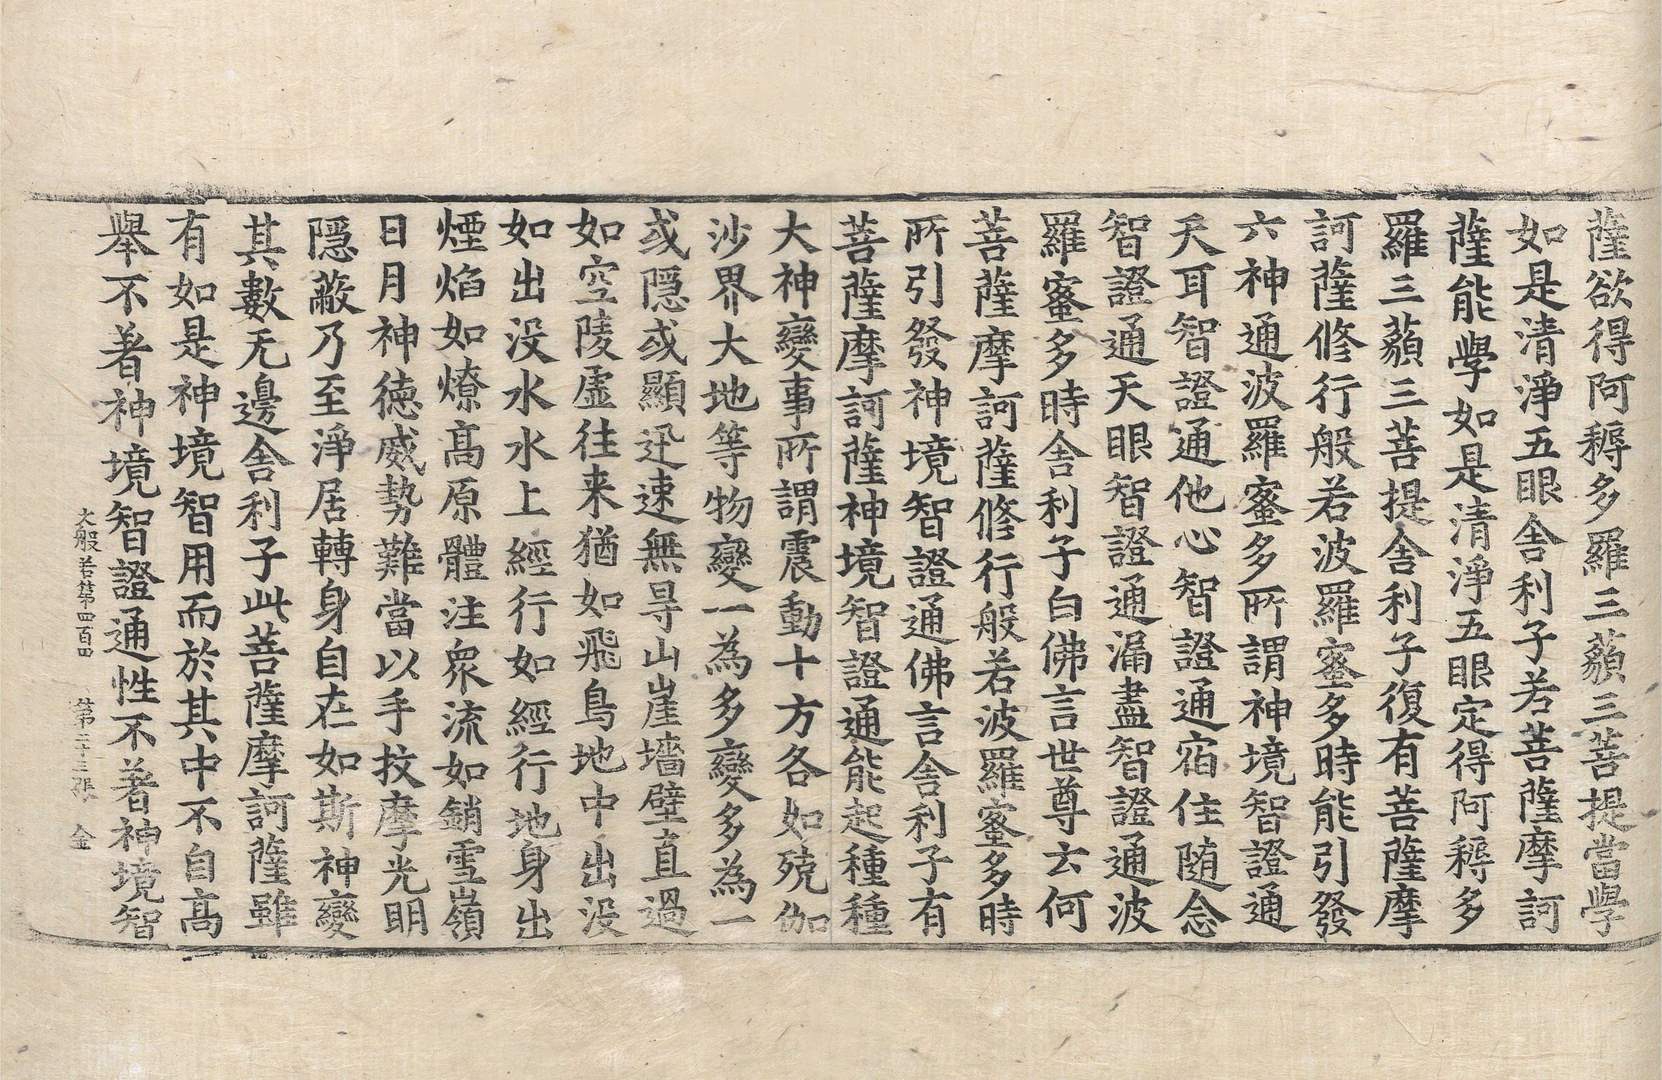 薩欲得阿耨多羅三藐三菩提當學
如是清淨五眼舍利子若菩薩摩訶
薩能學如是清淨五眼定得阿耨多
羅三藐三菩提舍利子復有菩薩摩
訶薩修行般若波羅蜜多時能引發
六神通波羅蜜多所謂神境智證通
天耳智證通他心智證通宿住随念
智證通天眼智證通漏盡智證通波
羅蜜多時舍利子白佛言世尊云何
菩薩摩訶薩修行般若波羅蜜多時
所引發神境智證通佛言舍利子有
菩薩摩訶薩神境智證通能起種種
大神變事所謂震動十方各如殑伽
沙界大地等物變一為多變多為一
或隱或顯迅速無㝵山崖墻壁直過
如空陵虛往来猶如飛鳥地中出没
如出没水水上經行如經行地身出
煙焰如燎髙原體注衆流如銷雪嶺
日月神徳威勢難當以手抆摩光明
隱蔽乃至淨居轉身自在如斯神變
其數无邊舍利子此菩薩摩訶薩雖
有如是神境智用而於其中不自髙
舉不著神境智證通性不著神境智
大般若第四百四 第二十三張 金